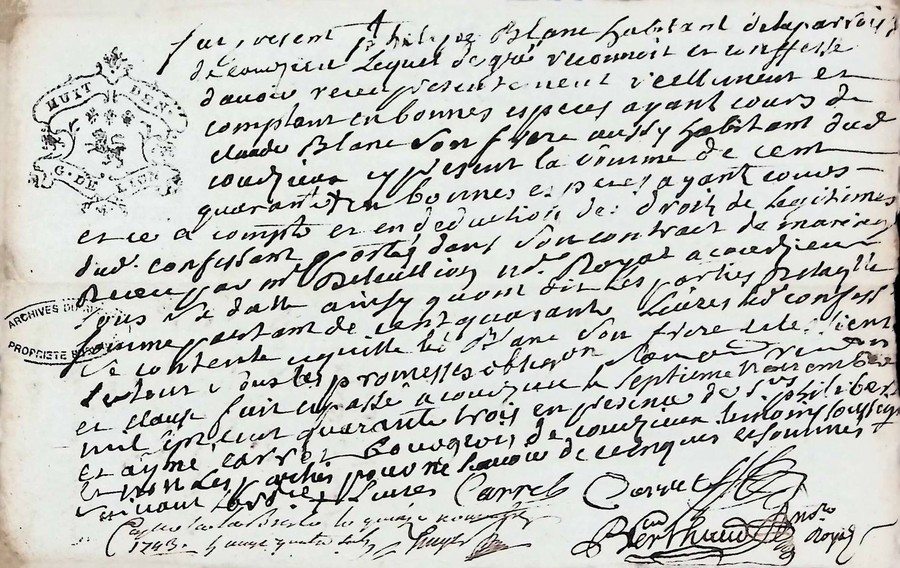 fut present Philipe Blanc habitant de la parroise
de couzieu Lequel de gré reconnoit et conffesse
davoir receu presentement reellement et
comptant en bonnes especes ayant cours de
claude Blanc Son frere aussy habitant dud
couzieu y present la somme de cent
quarante en bonnes especes ayant cours
et ce a compte et en deduction des droits de legitimes
dud. confessant portés dans Son contract de mariage
Receu par me nore Royal a couzieu
Sous Sa datte ainsy quont dit les parties De laqlle
Somme partant de cent quarante Livres led confess
Se contente en quitte led Blanc Son frere et le tient
et tout Sous les promesses obligaon
et clause fait et passé a couzieu le Septieme novembre
mil Sept cent quarante trois en presence de Srs philibert
et aymé Carret Bourgeois de couzieu temoins soussignes
et non Les parties pour ne Scavoir de ce enquis et Sommés
Carret Carret
le quinze novembre
1743.
Berthaud nore
Royal
HUIT DEN
G. DE LION
ARCHIVES DU
PROPRIETE